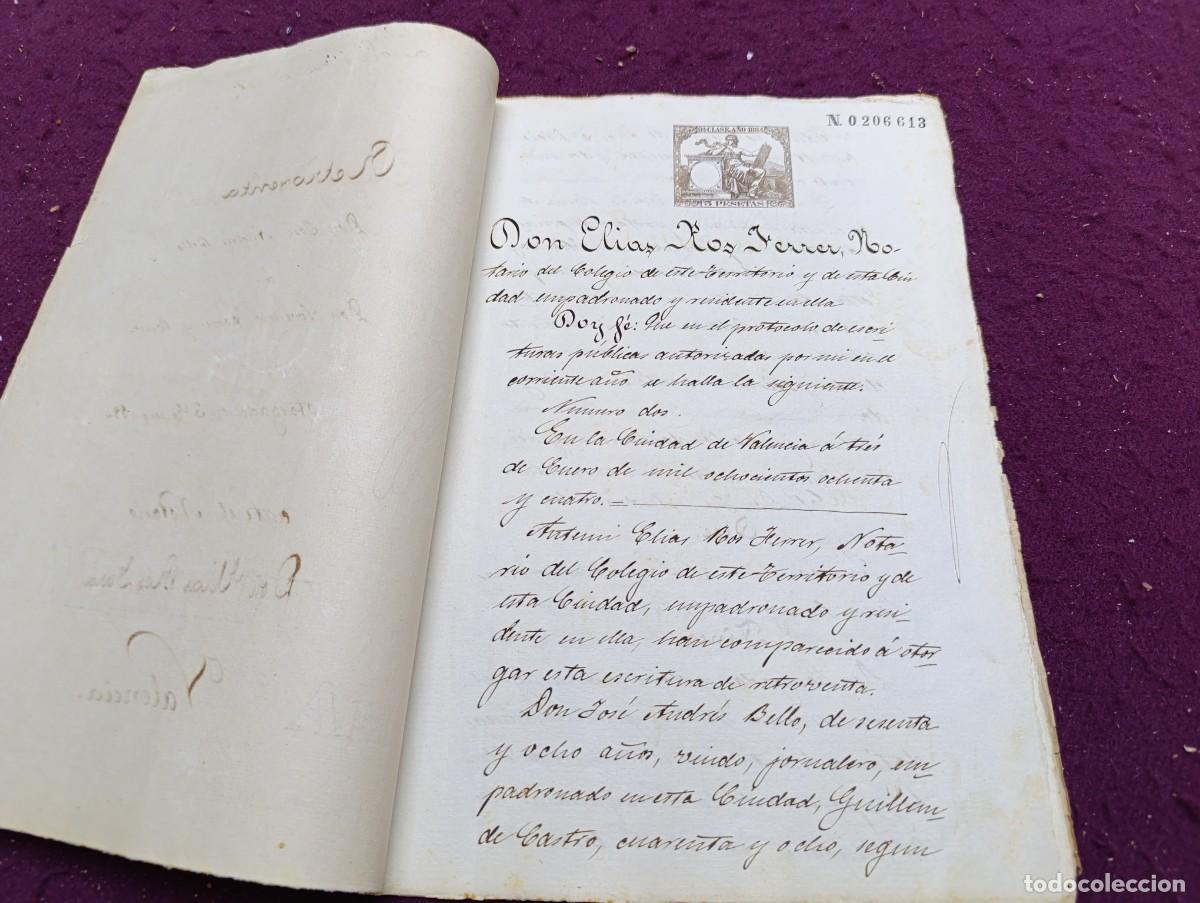 N. 0206613
11ª CLASE. AÑO 1884
75 PESETAS
Don Elias Ros Ferrer, No-
tario del Colegio de este Territorio y de esta Ciu
dad empadronado y residente en ella
Doy fé: Que en el protocolo de escri
turas públicas autorizadas por mi en el
corriente año se halla la siguiente.
Numero dos.
En la Ciudad de Valencia á trés
de Enero de mil ochocientos ochenta
y cuatro. =
Antemi Elias Ros Ferrer, Nota-
rio del Colegio de este Territorio y de
esta Ciudad, empadronado y resi-
dente en ella, han comparecido á otor-
gar esta escritura de retroventa.
Don José Andrés Bello, de sesenta
y ocho años, viudo, jornalero, em-
padronado en esta Ciudad, Guillem-
de Castro, cuarenta y ocho, segun
Retroventa
Don Elias Ros Ferrer
Valencia.
todocoleccion